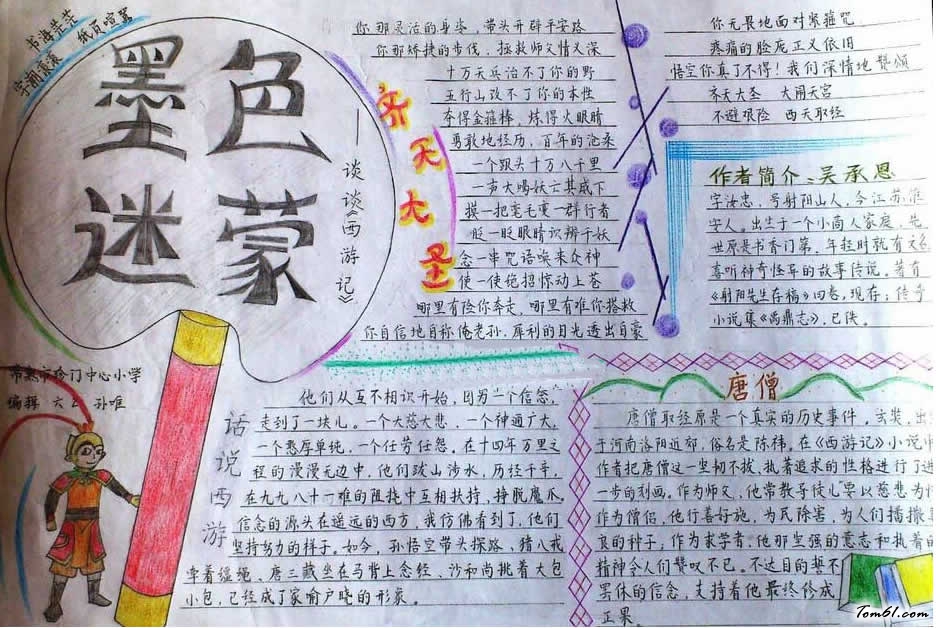 书海茫茫
纸页喧嚣
字潮滚滚
墨色
迷蒙
——谈谈《西游记》
常熟市珍门中心小学
编辑 六2 孙唯
齐天大圣
你那灵活的身姿，带头开辟平安路
你那矫捷的步伐，拯救师父情义深
十万天兵治不了你的野
五行山改不了你的本性
夺得金箍棒，炼得火眼睛
勇敢地经历，百年的沧桑
一个跟头十万八千里
一声大喝妖亡其威下
拔一把毫毛变一群行者
眨一眨眼睛识辨千妖
念一串咒语唤来众神
使一使绝招惊动上苍
哪里有险你奔走，哪里有难你搭救
你自信地自称俺老孙，犀利的目光透出自豪
你无畏地面对紧箍咒
疼痛的脸庞正义依旧
悟空你真了不得！我们深情地赞颂
齐天大圣 大闹天宫
不避艰险 西天取经
作者简介、吴承恩
字汝忠，号射阳山人，今江苏淮
安人。出生于一个小商人家庭，先
世原是书香门第，年轻时就有文名
喜听神奇怪异的故事传说，著有
《射阳先生存稿》四卷，现存；传奇
小说集《禹鼎志》，已佚。
话说西游
他们从互不相识开始，因另一个信念，
走到了一块儿。一个大慈大悲，一个神通广大，
一个憨厚单纯，一个任劳任怨。在十四年万里之
程的漫漫无边中，他们跋山涉水，历经千辛，
在九九八十一难的阻挠中互相扶持，挣脱魔爪。
信念的源头在遥远的西方，我仿佛看到了，他们
坚持努力的样子。如今，孙悟空带头探路、猪八戒
牵着缰绳、唐三藏坐在马背上念经、沙和尚挑着大包
小包，已经成了家喻户晓的形象。
唐僧
唐僧取经原是一个真实的历史事件。玄奘，出生
于河南洛阳近郊，俗名是陈祎。在《西游记》小说中
作者把唐僧这一坚韧不拔、执著追求的性格进行了进
一步的刻画。作为师父，他常教导徒儿要以慈悲为怀
作为僧侣，他行善好施，为民除害，为人们播撒善
良的种子；作为求学者，他那坚强的意志和执着的
精神令人们赞叹不已。不达目的誓不
罢休的信念，支持着他最终修成
正果。
Tom61.com